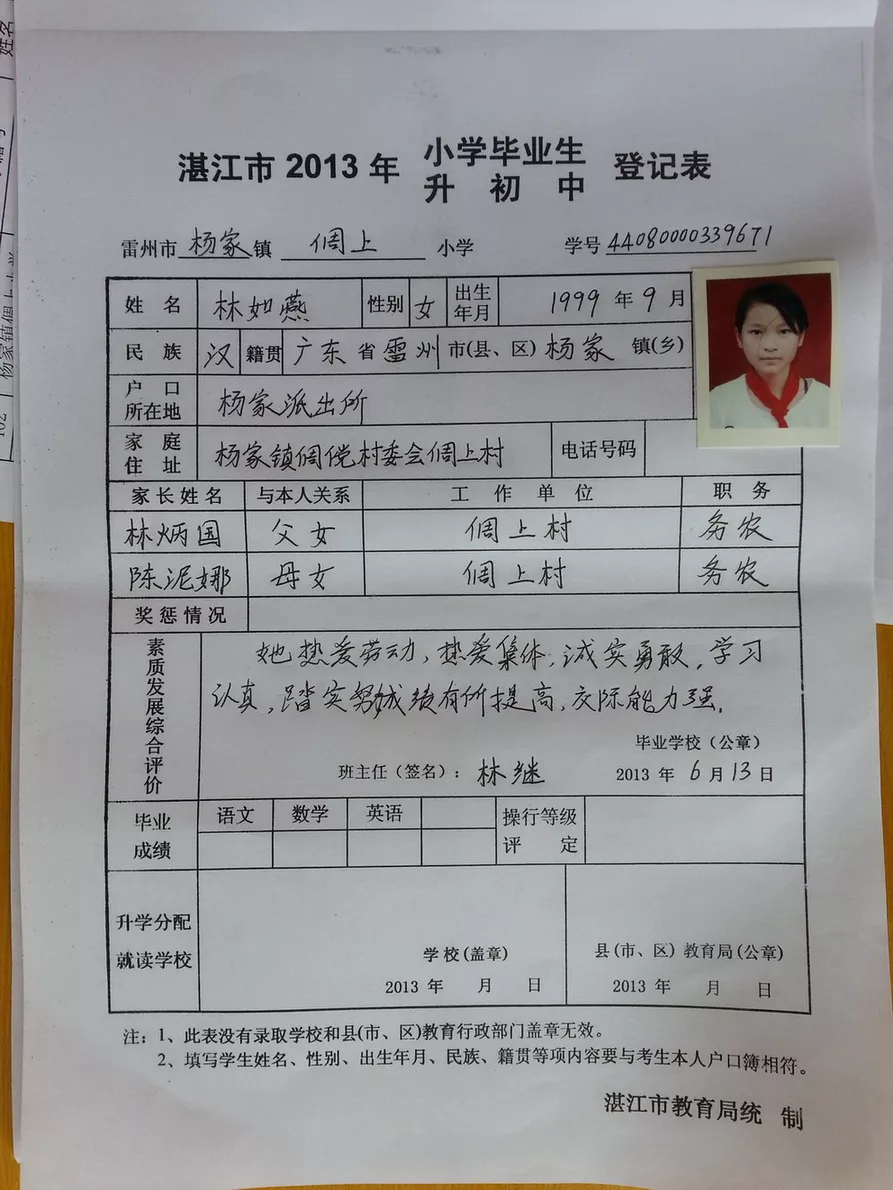 湛江市 2013 年 小学毕业生 登记表
升 初 中
雷州市 杨家 镇 倜上 小学 学号 44080000339671
姓 名 林如燕 性别 女 出生年月 1999 年 9 月
民 族 汉 籍贯 广东 省 雷州 市(县、区) 杨家 镇(乡)
户 口
所在地 杨家派出所
家 庭
住 址 杨家镇倜傥村委会倜上村 电话号码
家长姓名 与本人关系 工 作 单 位 职 务
林炳国 父女 倜上村 务农
陈泥娜 母女 倜上村 务农
奖惩情况
素质发展综合评价
她热爱劳动，热爱集体，诚实勇敢，学习
认真，踏实努成绩有所提高，交际能力强。
毕业学校（公章）
班主任（签名）： 林继 2013 年 6 月 13 日
毕业
成绩
语文 数学 英语
操行等级
评 定
升学分配
就读学校
学校(盖章) 县(市、区) 教育局(公章)
2013 年 月 日 2013 年 月 日
注：1、此表没有录取学校和县(市、区)教育行政部门盖章无效。
2、填写学生姓名、性别、出生年月、民族、籍贯等项内容要与考生本人户口簿相符。
湛江市教育局统 制